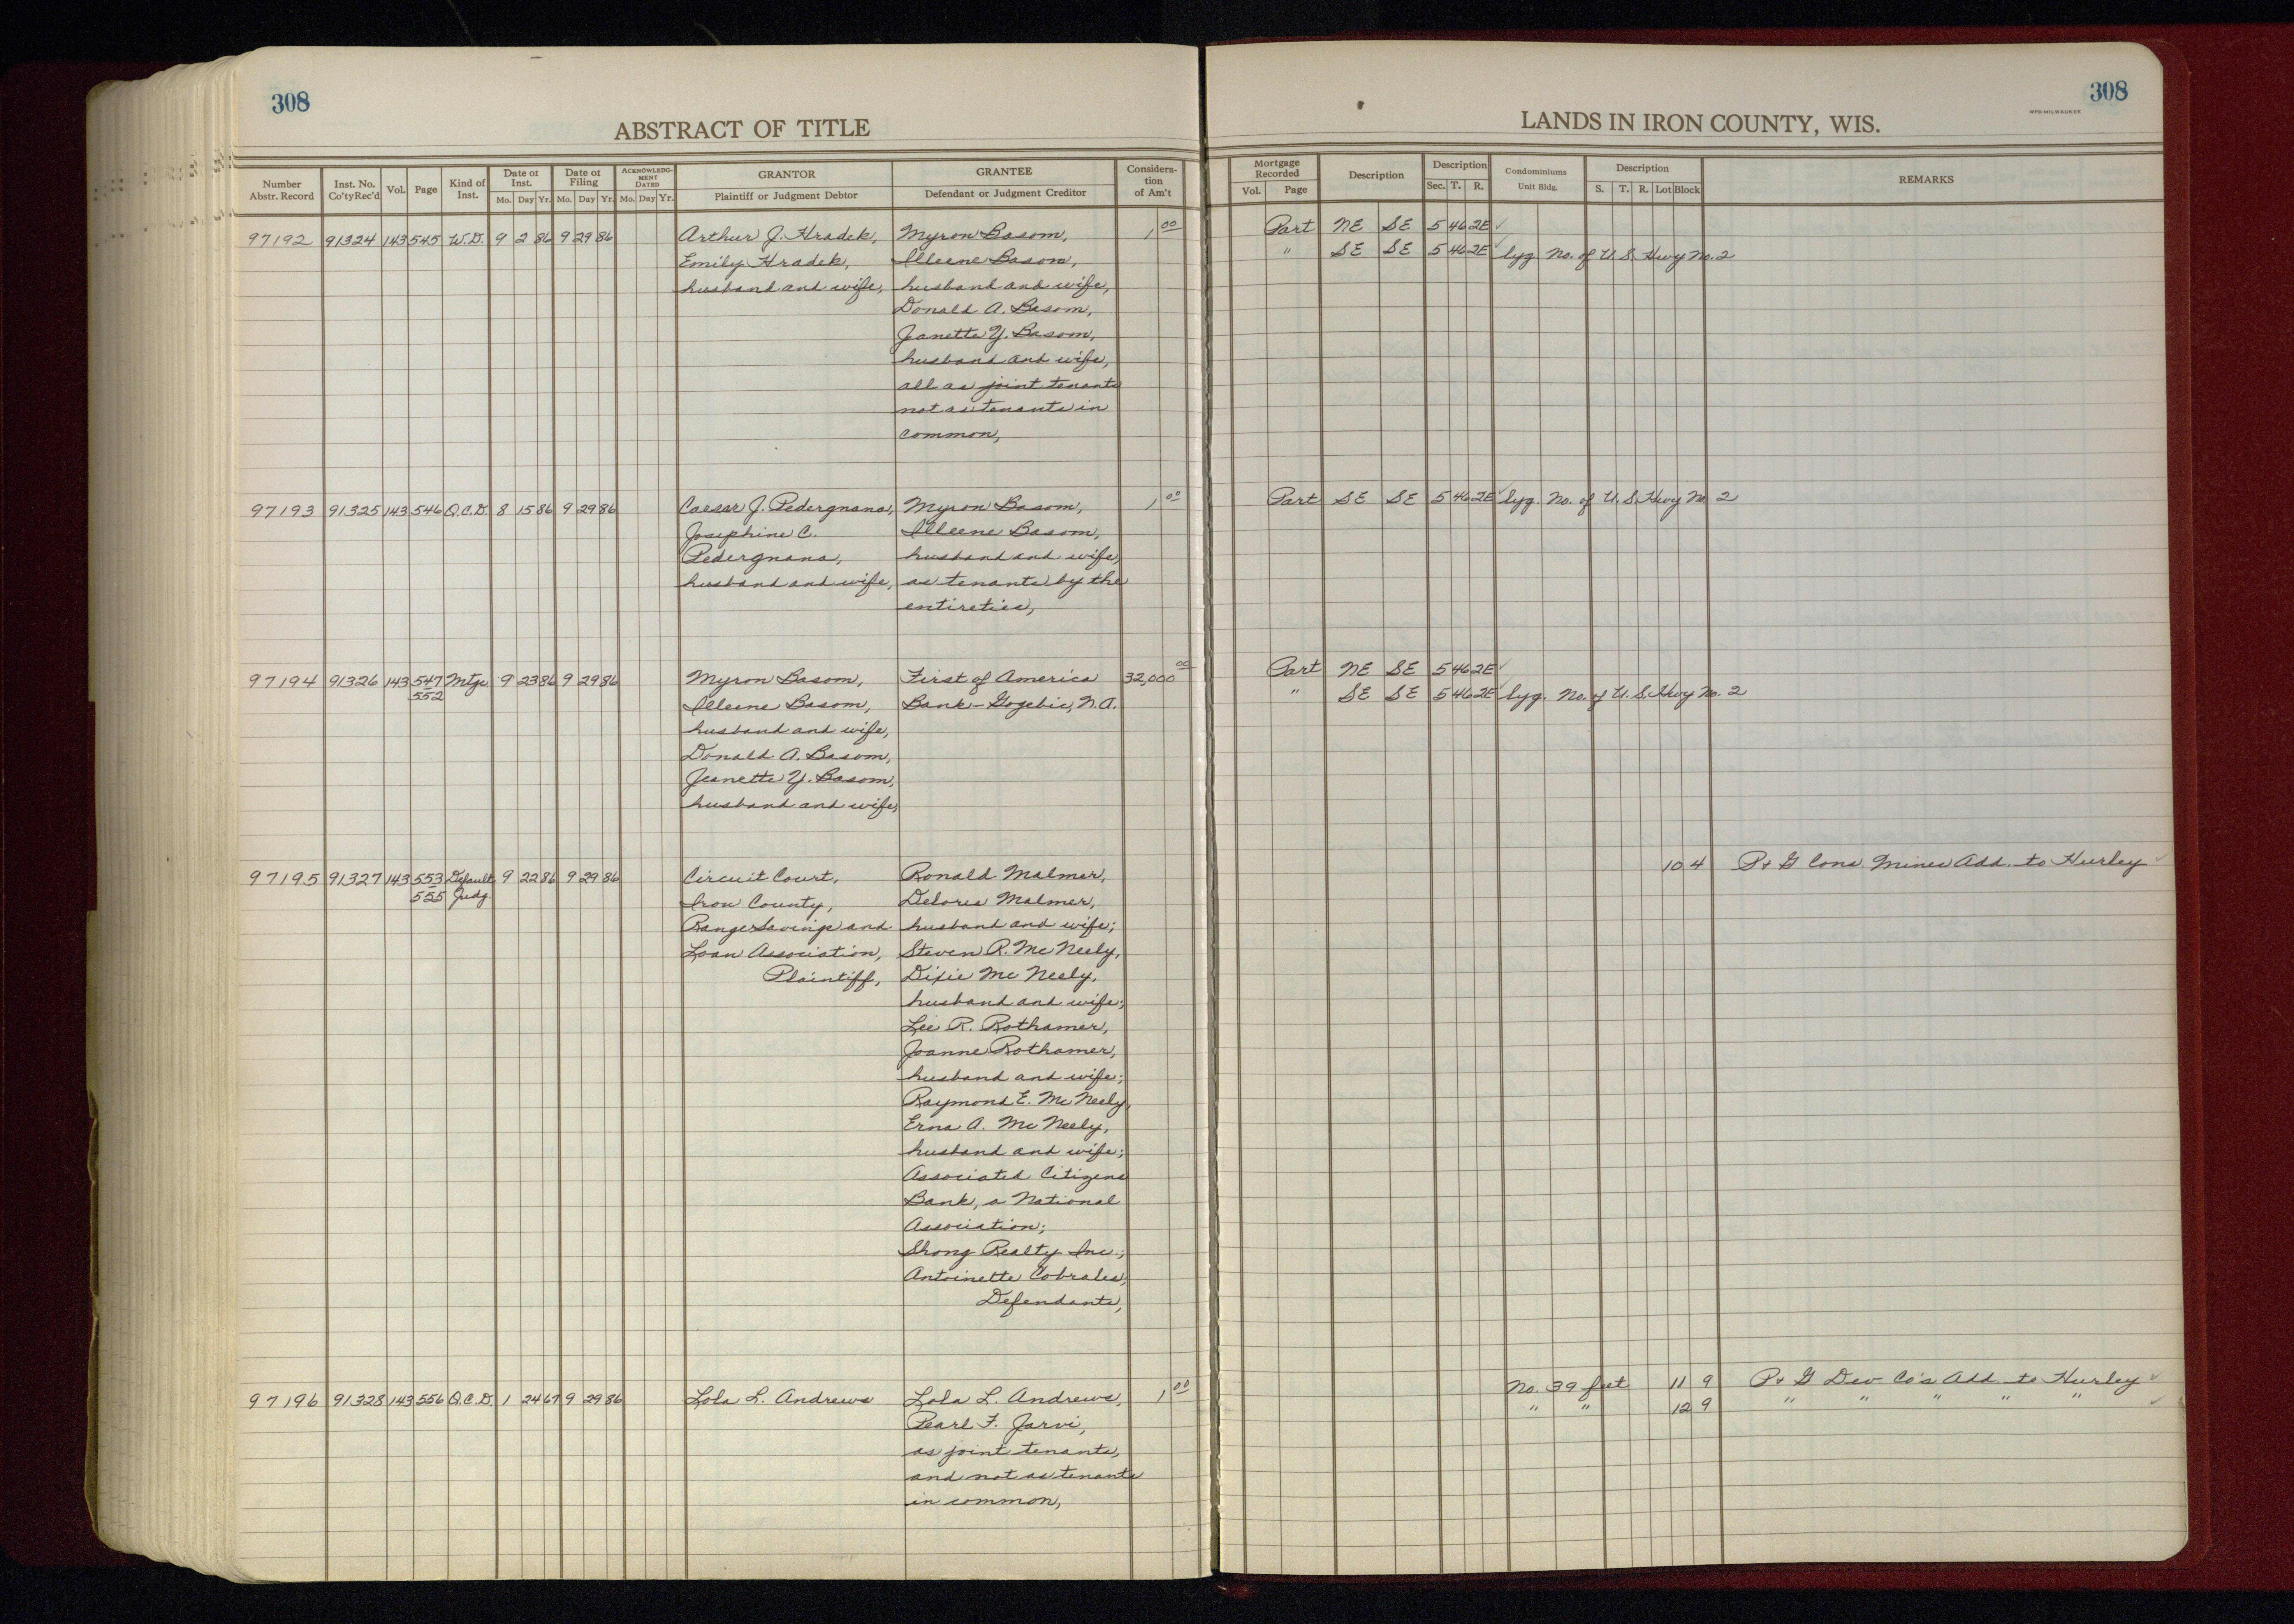 308
ABSTRACT OF TITLE
Number Abstr. Record | Inst. No. Co'ty Rec'd | Vol. | Page | Kind of Inst. | Date of Inst. Mo. Day Yr. | Date of Filing Mo. Day Yr. | ACKNOWLEDGMENT DATED Mo. Day Yr. | GRANTOR Plaintiff or Judgment Debtor | GRANTEE Defendant or Judgment Creditor | Consideration of Am't
97192 91324 143 545 W.D. 9 2 86 9 29 86 Arthur J. Hradek, Myron Basom, 1 00
Emily Hradek, Illeene Basom,
husband and wife, husband and wife,
Donald A. Basom,
Jeanette Y. Basom,
husband and wife,
all as joint tenants
not as tenants in
common,
97193 91325 143 546 Q.C.D. 8 15 86 9 29 86 Caesar J. Pedergnana, Myron Basom, 1 00
Josephine C. Illeene Basom,
Pedergnana, husband and wife,
husband and wife, as tenants by the
entireties,
97194 91326 143 547 Mtge. 9 23 86 9 29 86 Myron Basom, First of America 32,000 00
552 Illeene Basom, Bank-Gogebic, N.A.
husband and wife,
Donald A. Basom,
Jeanette Y. Basom,
husband and wife,
97195 91327 143 553 Default 9 22 86 9 29 86 Circuit Court, Ronald Malmer,
555 Judg. Iron County, Delores Malmer,
Range Savings and husband and wife;
Loan Association, Steven R. McNeely,
Plaintiff, Dixie McNeely,
husband and wife;
Lee R. Rothamer,
Joanne Rothamer,
husband and wife;
Raymond E. McNeely,
Erna A. McNeely,
husband and wife;
Associated Citizens
Bank, a National
Association;
Shong Realty Inc.;
Antoinette Cobrales,
Defendants,
97196 91328 143 556 Q.C.D. 1 24 67 9 29 86 Lola L. Andrews Lola L. Andrews, 1 00
Pearl F. Jarvi,
as joint tenants,
and not as tenants
in common,
308
WPB-MILWAUKEE
LANDS IN IRON COUNTY, WIS.
Mortgage Recorded Vol. Page | Description | Description Sec. T. R. | Condominiums Unit Bldg. | Description S. T. R. Lot Block | REMARKS
Part NE SE 5 46 2E ✓
" SE SE 5 46 2E ✓ lyg. No. of U.S. Hwy No. 2
Part SE SE 5 46 2E ✓ lyg. No. of U.S. Hwy No. 2
Part NE SE 5 46 2E ✓
" SE SE 5 46 2E ✓ lyg. No. of U.S. Hwy No. 2
10 4 P + G Cons. Mines Add. to Hurley ✓
No. 39 feet 11 9 P + G Dev. Co's. Add. to Hurley ✓
" " 12 9 " " " " " ✓